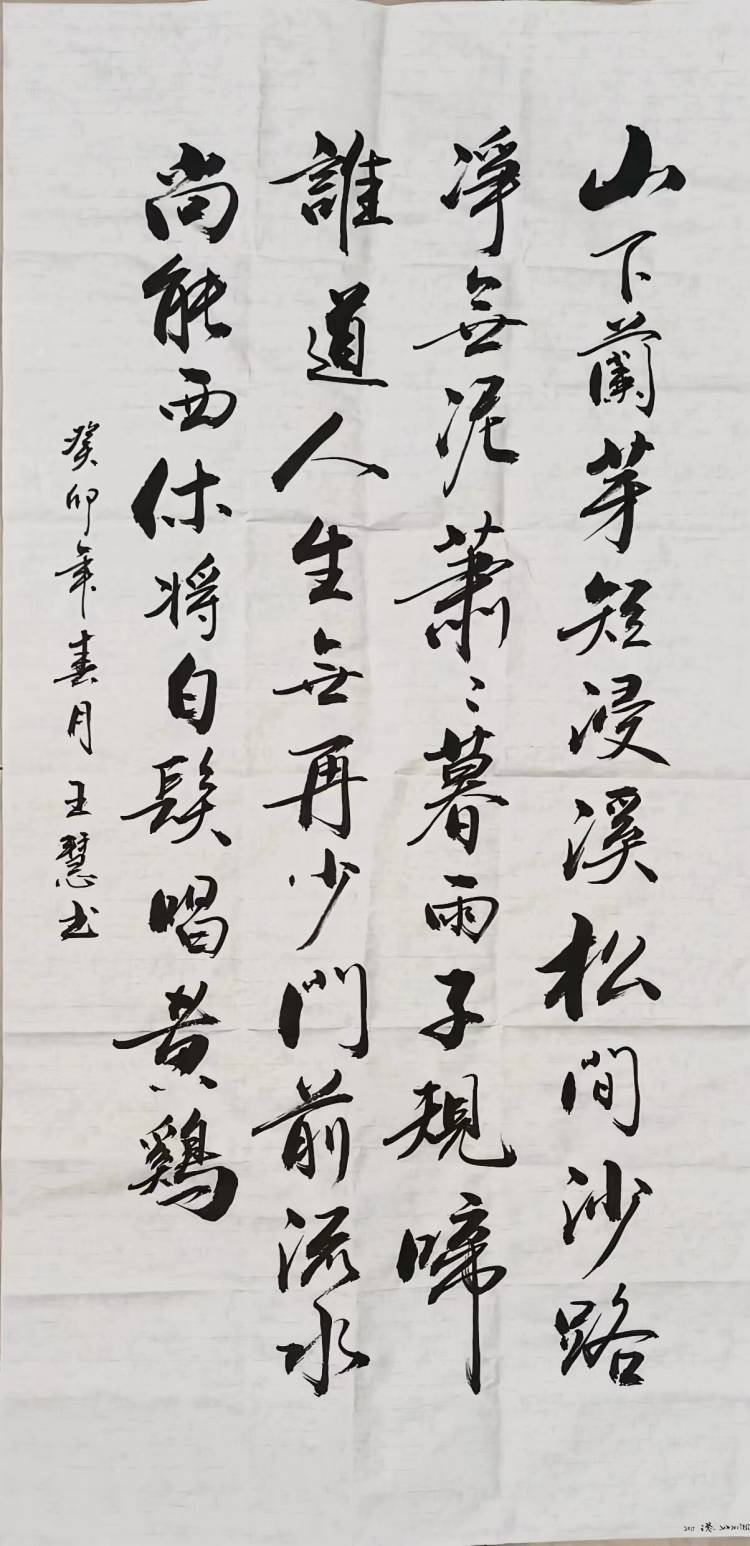 山下蘭芽短浸溪松間沙路
凈無泥蕭〻暮雨子規啼
誰道人生無再少門前流水
尚能西休將白髮唱黄鷄
癸卯年春月王慧书